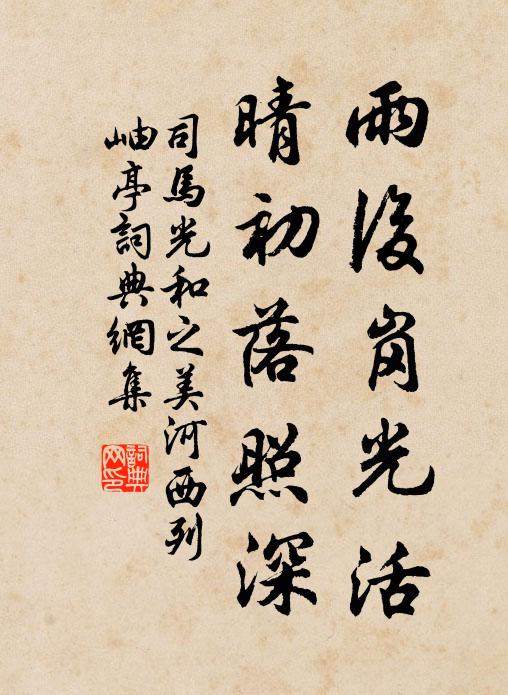 雨後崗光活
晴初落照深
司馬光和之美河西列
岫亭詞典網集
詞典網印